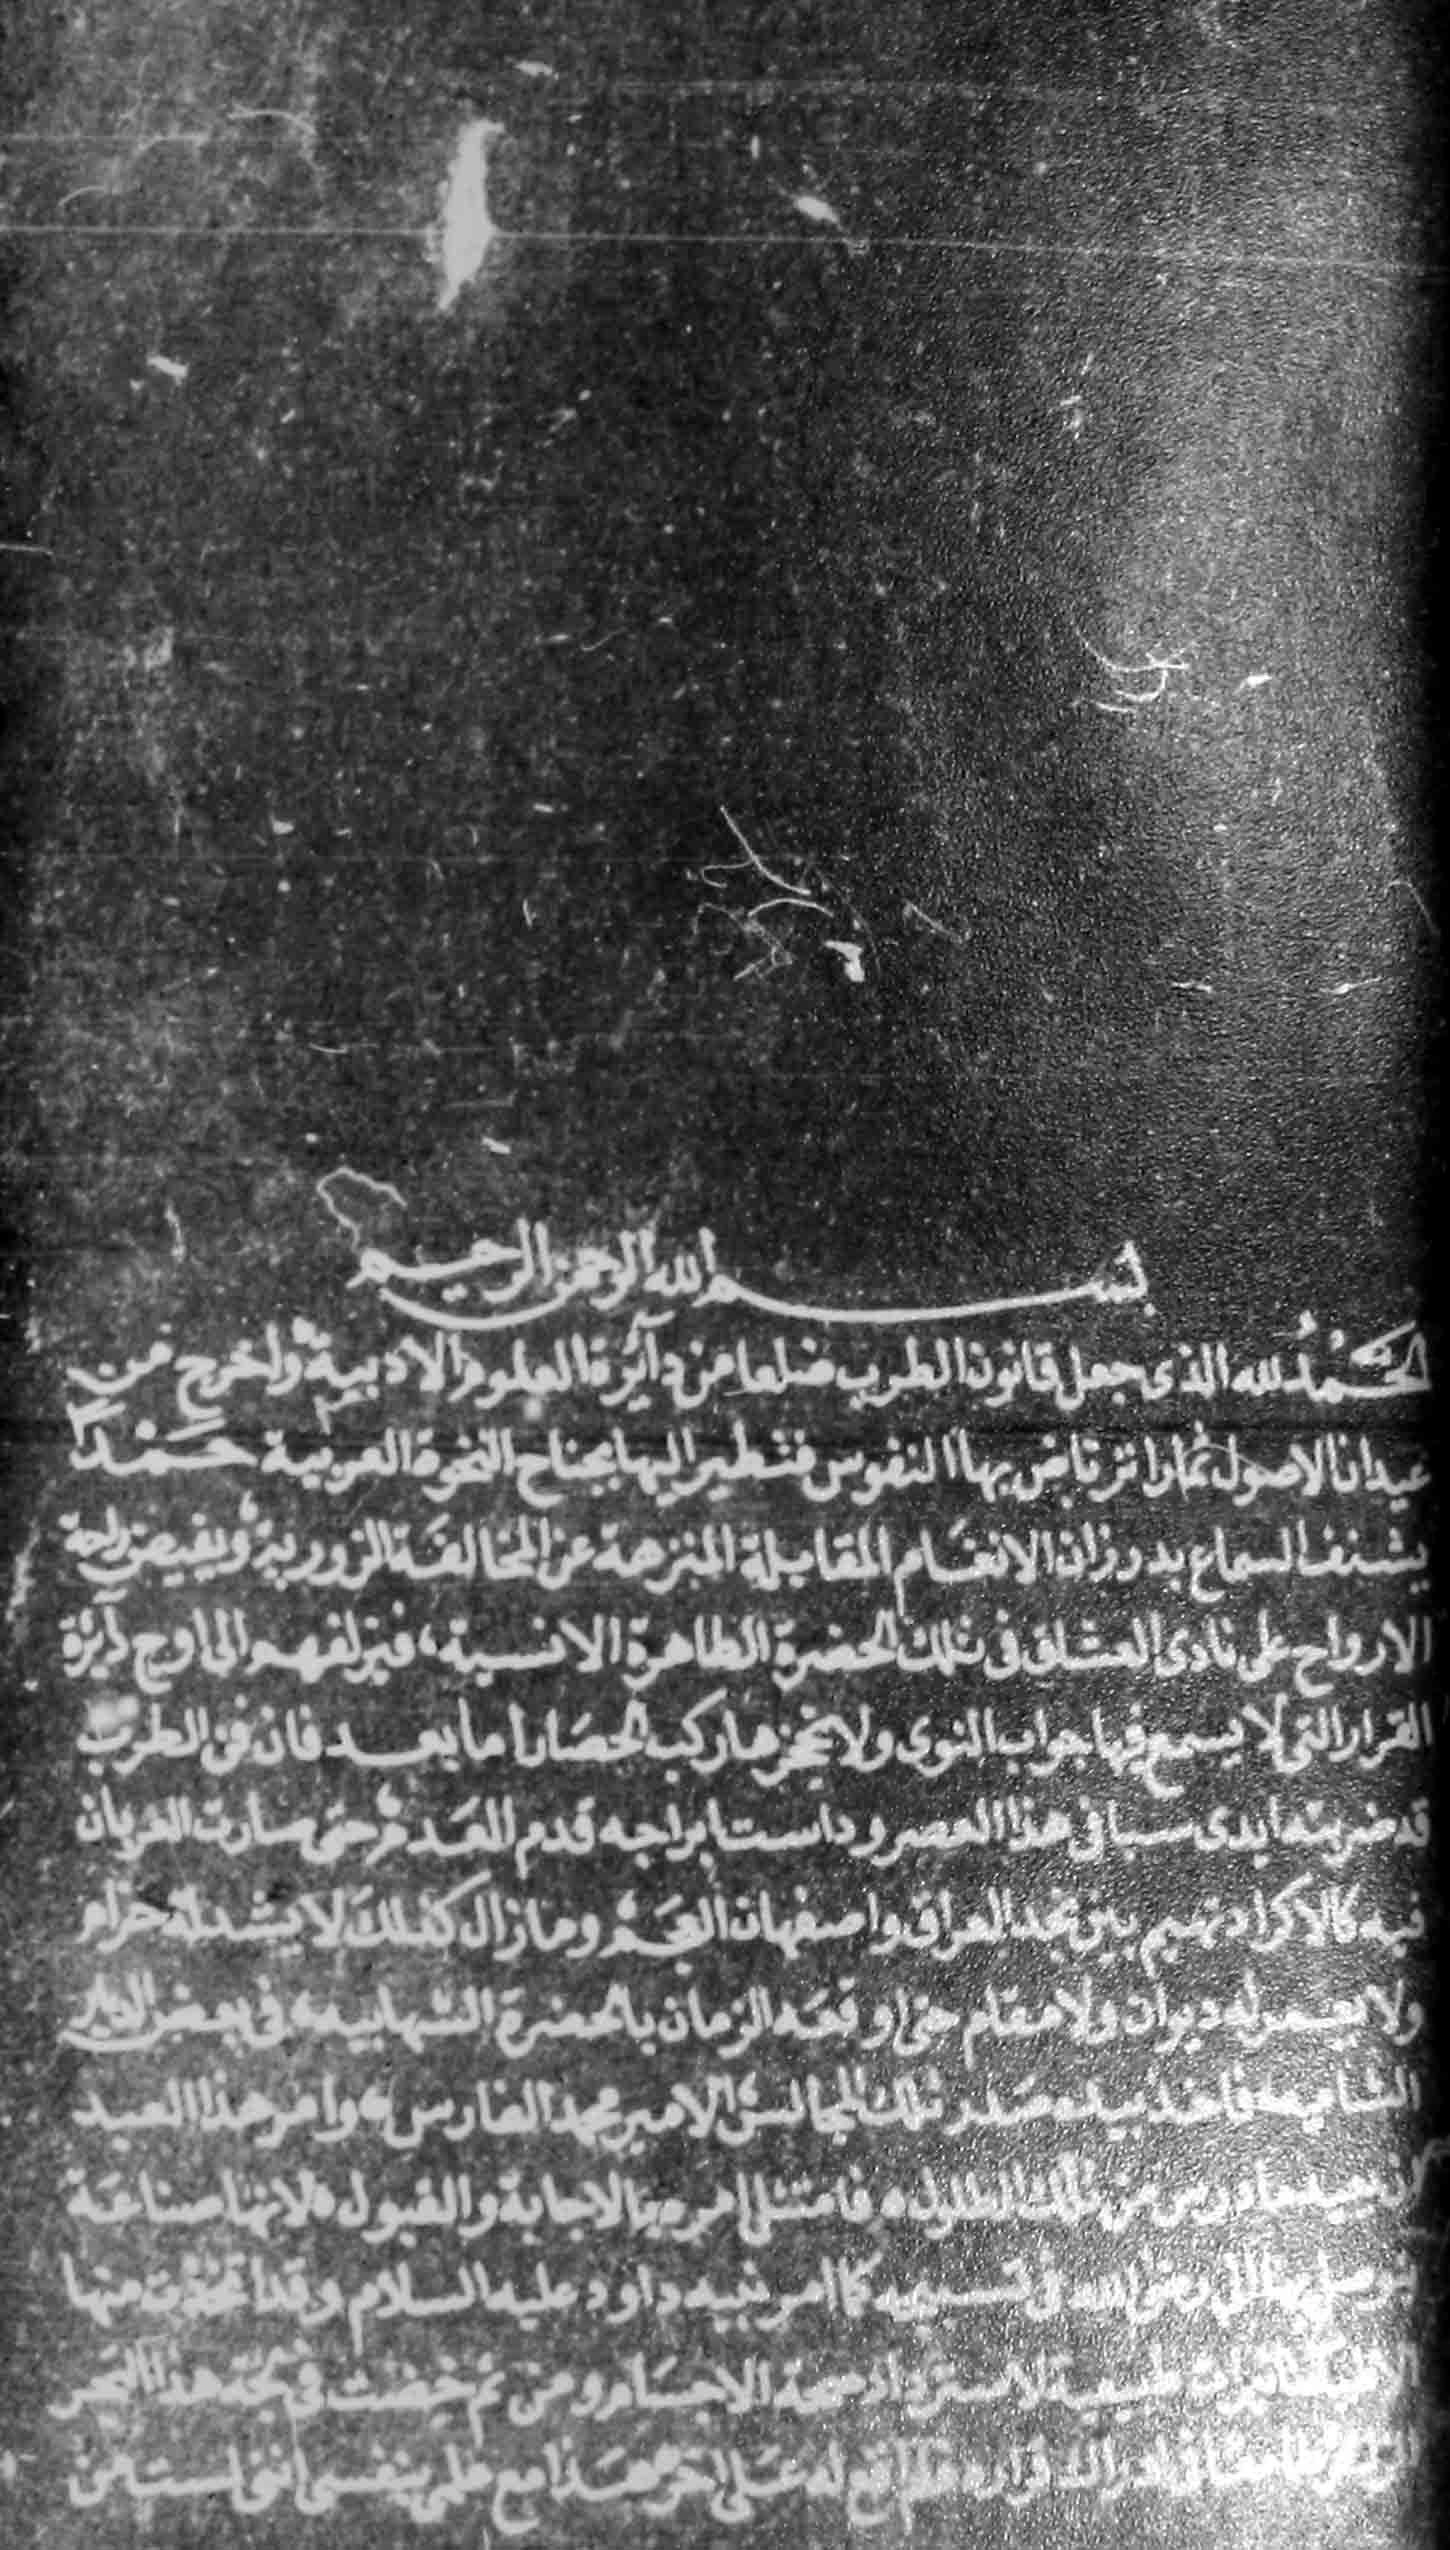 بسم الله الرحمن الرحيم
الحَمْدُ لله الذى جعل قانون الطرب ضلعا من دآئرة العلوم الادبية واخرج من
عيدان الاصول ثمارا ترتاض بها النفوس فتطير اليها بجناح النخوة العربية حَمْدًا
يشنف السماع بدرزان الانغَام المقابلة المنزهة عن المخالفَة الزورية ويفيض راحة
الارواح على نادى العشاق فى تلك الحضرة الطاهرة الانسية، فيزلفهم الى اوج دآئرة
القرار التى لا يسمع فيها جواب النوى ولا ركب الحصَار اما بعد فان فن الطرب
قد ضربته ايدى سبا فى هذا العصر وداست ابراجه قدم العَدم حتى سارت العربان
فيه كالاكراد تهيم بين نجد العراق واصفهان العَجَم وما زال كذلك لا يشد له حزام
ولا له ديوان ولا مقام حتى اوقعَه الزمان بالحضرة الشهابيه، فى بعض
الشاميه فاخذ بيده صَدر تلك المجالس الامير محمد الفارس، وامر هذا العبد
ان درس من تلك الطلول، فامتثل امره بالاجابة والقبول، لانها صناعَة
الى الله فى تسبيحه كما امر نبيه داود عليه السلام وقد اتخذت منها
طبيبية لاسترداد صحة الاجسَام ومن ثم خضت فى لجة هذا البحر
ادراك قراره فلم اقع له عَلى اخر هَذا مع علمى بنفسى اننى لست من